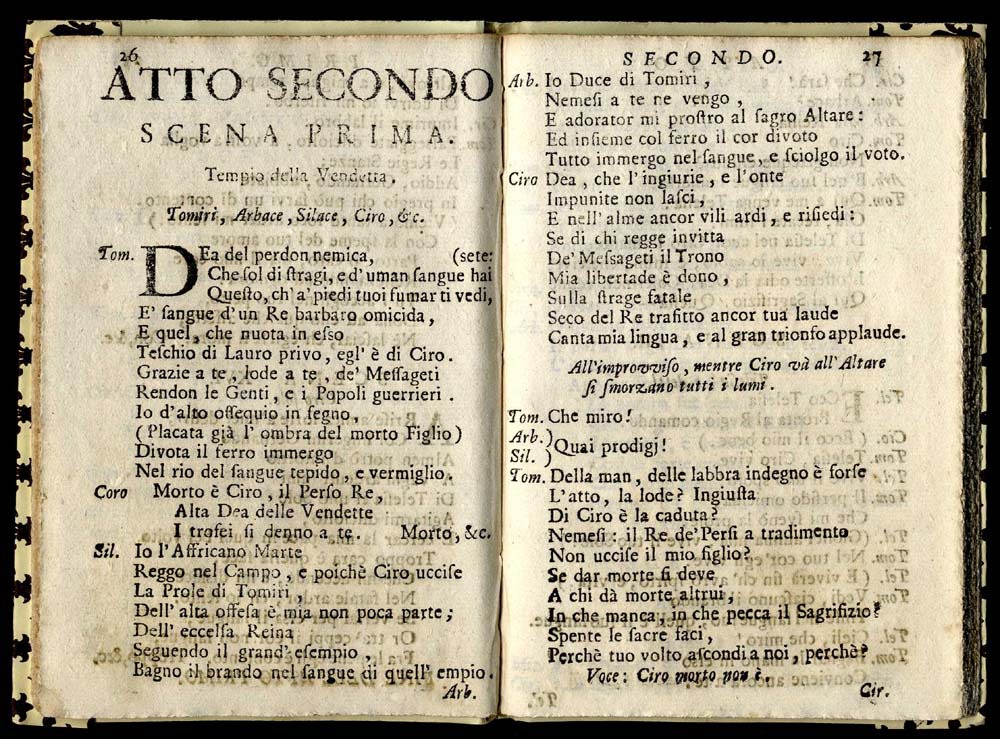 26
ATTO SECONDO
SCENA PRIMA.
Tempio della Vendetta.
Tomiri, Arbace, Silace, Ciro, &c.
Tom. DEa del perdon nemica, (sete:
Che ſol di ſtragi, e d' uman ſangue hai
Queſto, ch' a' piedi tuoi fumar ti vedi,
E' ſangue d'un Re barbaro omicida,
E quel, che nuota in eſſo
Teſchio di Lauro privo, egl' è di Ciro.
Grazie a te, lode a te, de' Meſſageti
Rendon le Genti, e i Popoli guerrieri.
Io d'alto oſſequio in ſegno,
(Placata già l' ombra del morto Figlio)
Divota il ferro immergo
Nel rio del ſangue tepido, e vermiglio.
Coro Morto è Ciro, il Perſo Re,
Alta Dea delle Vendette
I trofei ſi denno a te. Morto, &c.
Sil. Io l'Affricano Marte
Reggo nel Campo, e poichè Ciro ucciſe
La Prole di Tomiri,
Dell' alta offeſa è mia non poca parte;
Dell' eccelſa Reina
Seguendo il grand' eſempio,
Bagno il brando nel ſangue di quell' empio.
Arb.
SECONDO. 27
Arb. Io Duce di Tomiri,
Nemeſi a te ne vengo,
E adorator mi proſtro al ſagro Altare:
Ed inſieme col ferro il cor divoto
Tutto immergo nel ſangue, e ſciolgo il voto.
Ciro Dea, che l' ingiurie, e l'onte
Impunite non laſci,
E nell' alme ancor vili ardi, e riſiedi:
Se di chi regge invitta
De' Meſſageti il Trono
Mia libertade è dono,
Sulla ſtrage fatale
Seco del Re trafitto ancor tua laude
Canta mia lingua, e al gran trionfo applaude.
All'improvviſo, mentre Ciro và all' Altare
ſi ſmorzano tutti i lumi.
Tom. Che miro!
Arb.)
Sil. ) Quai prodigj!
Tom. Della man, delle labbra indegno è forſe
L'atto, la lode? Ingiuſta
Di Ciro è la caduta?
Nemeſi: il Re de' Perſi a tradimento
Non ucciſe il mio figlio?
Se dar morte ſi deve
A chi dà morte altrui,
In che manca, in che pecca il Sagrifizio?
Spente le ſacre faci,
Perchè tuo volto aſcondi a noi, perchè?
Voce: Ciro morto non è.
Cir.